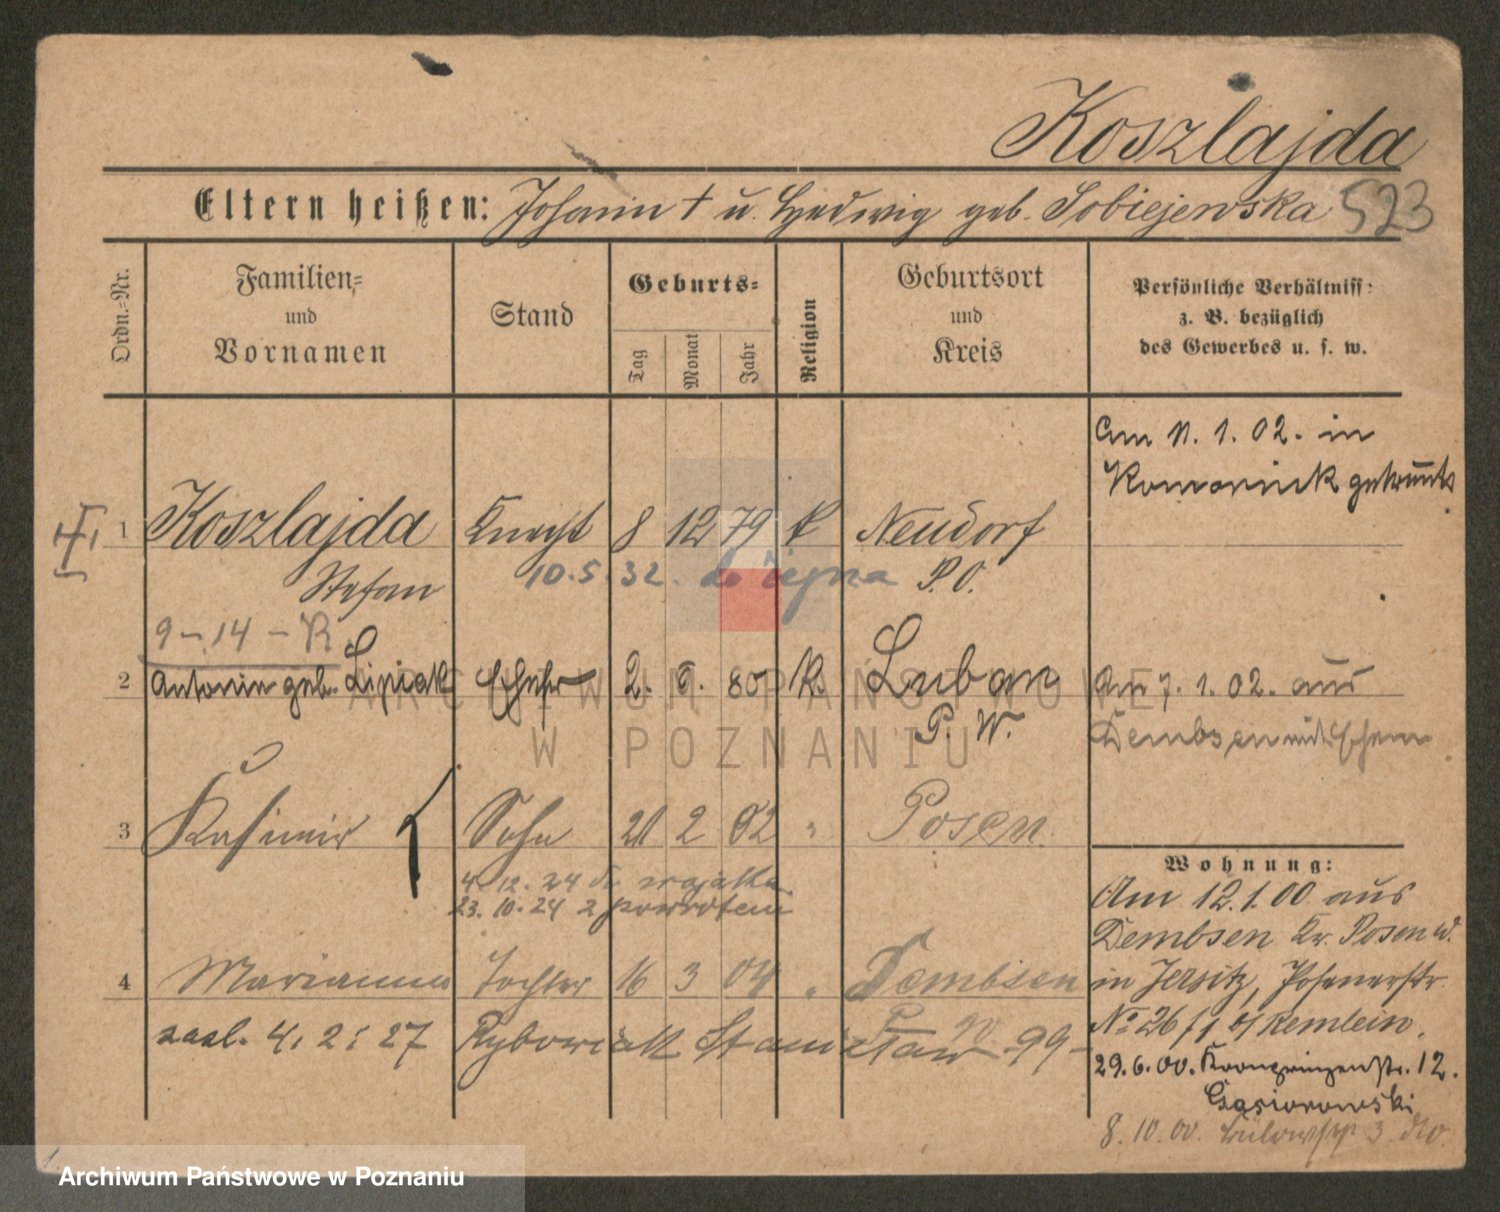 Koszlajda
Eltern heißen: Johann † u. Hedwig geb. Sobiejewska 523
Ordn.-Nr.
Familien- und Vornamen
Stand
Geburts-
Tag Monat Jahr
Religion
Geburtsort und Kreis
Persönliche Verhältniss: z. B. bezüglich des Gewerbes u. s. w.
Am 11. 1. 02. in
Komornik getraut
1 Koszlajda Knecht 8 12 79 k Neudorf
Stefan 10.5.32. do P. O.
9 - 14 - R
2 Antonin geb. Lipiak Ehefr 2. 6. 80 k. Luban Am 7. 1. 02. aus
P. W. Dembsen mit Ehem
3 Kasimir Sohn 21 2 02 " Posen
4. 12. 24 do
23. 10. 24 z powrotem
4 Marianna Tochter 16 3 04 " Dembsen
zaśl. 4. 2. 27 Rybowiak Stanisław 99-
Wohnung:
Am 12.1.00 aus
Dembsen Kr. Posen W.
in Jersitz, Posenerstr.
No 26 / b/ Remlein.
29.6.00. Kronprinzenstr. 12.
Gąsiorowski
8. 10. 00. 3
ARCHIWUM PAŃSTWOWE
W POZNANIU
Archiwum Państwowe w Poznaniu